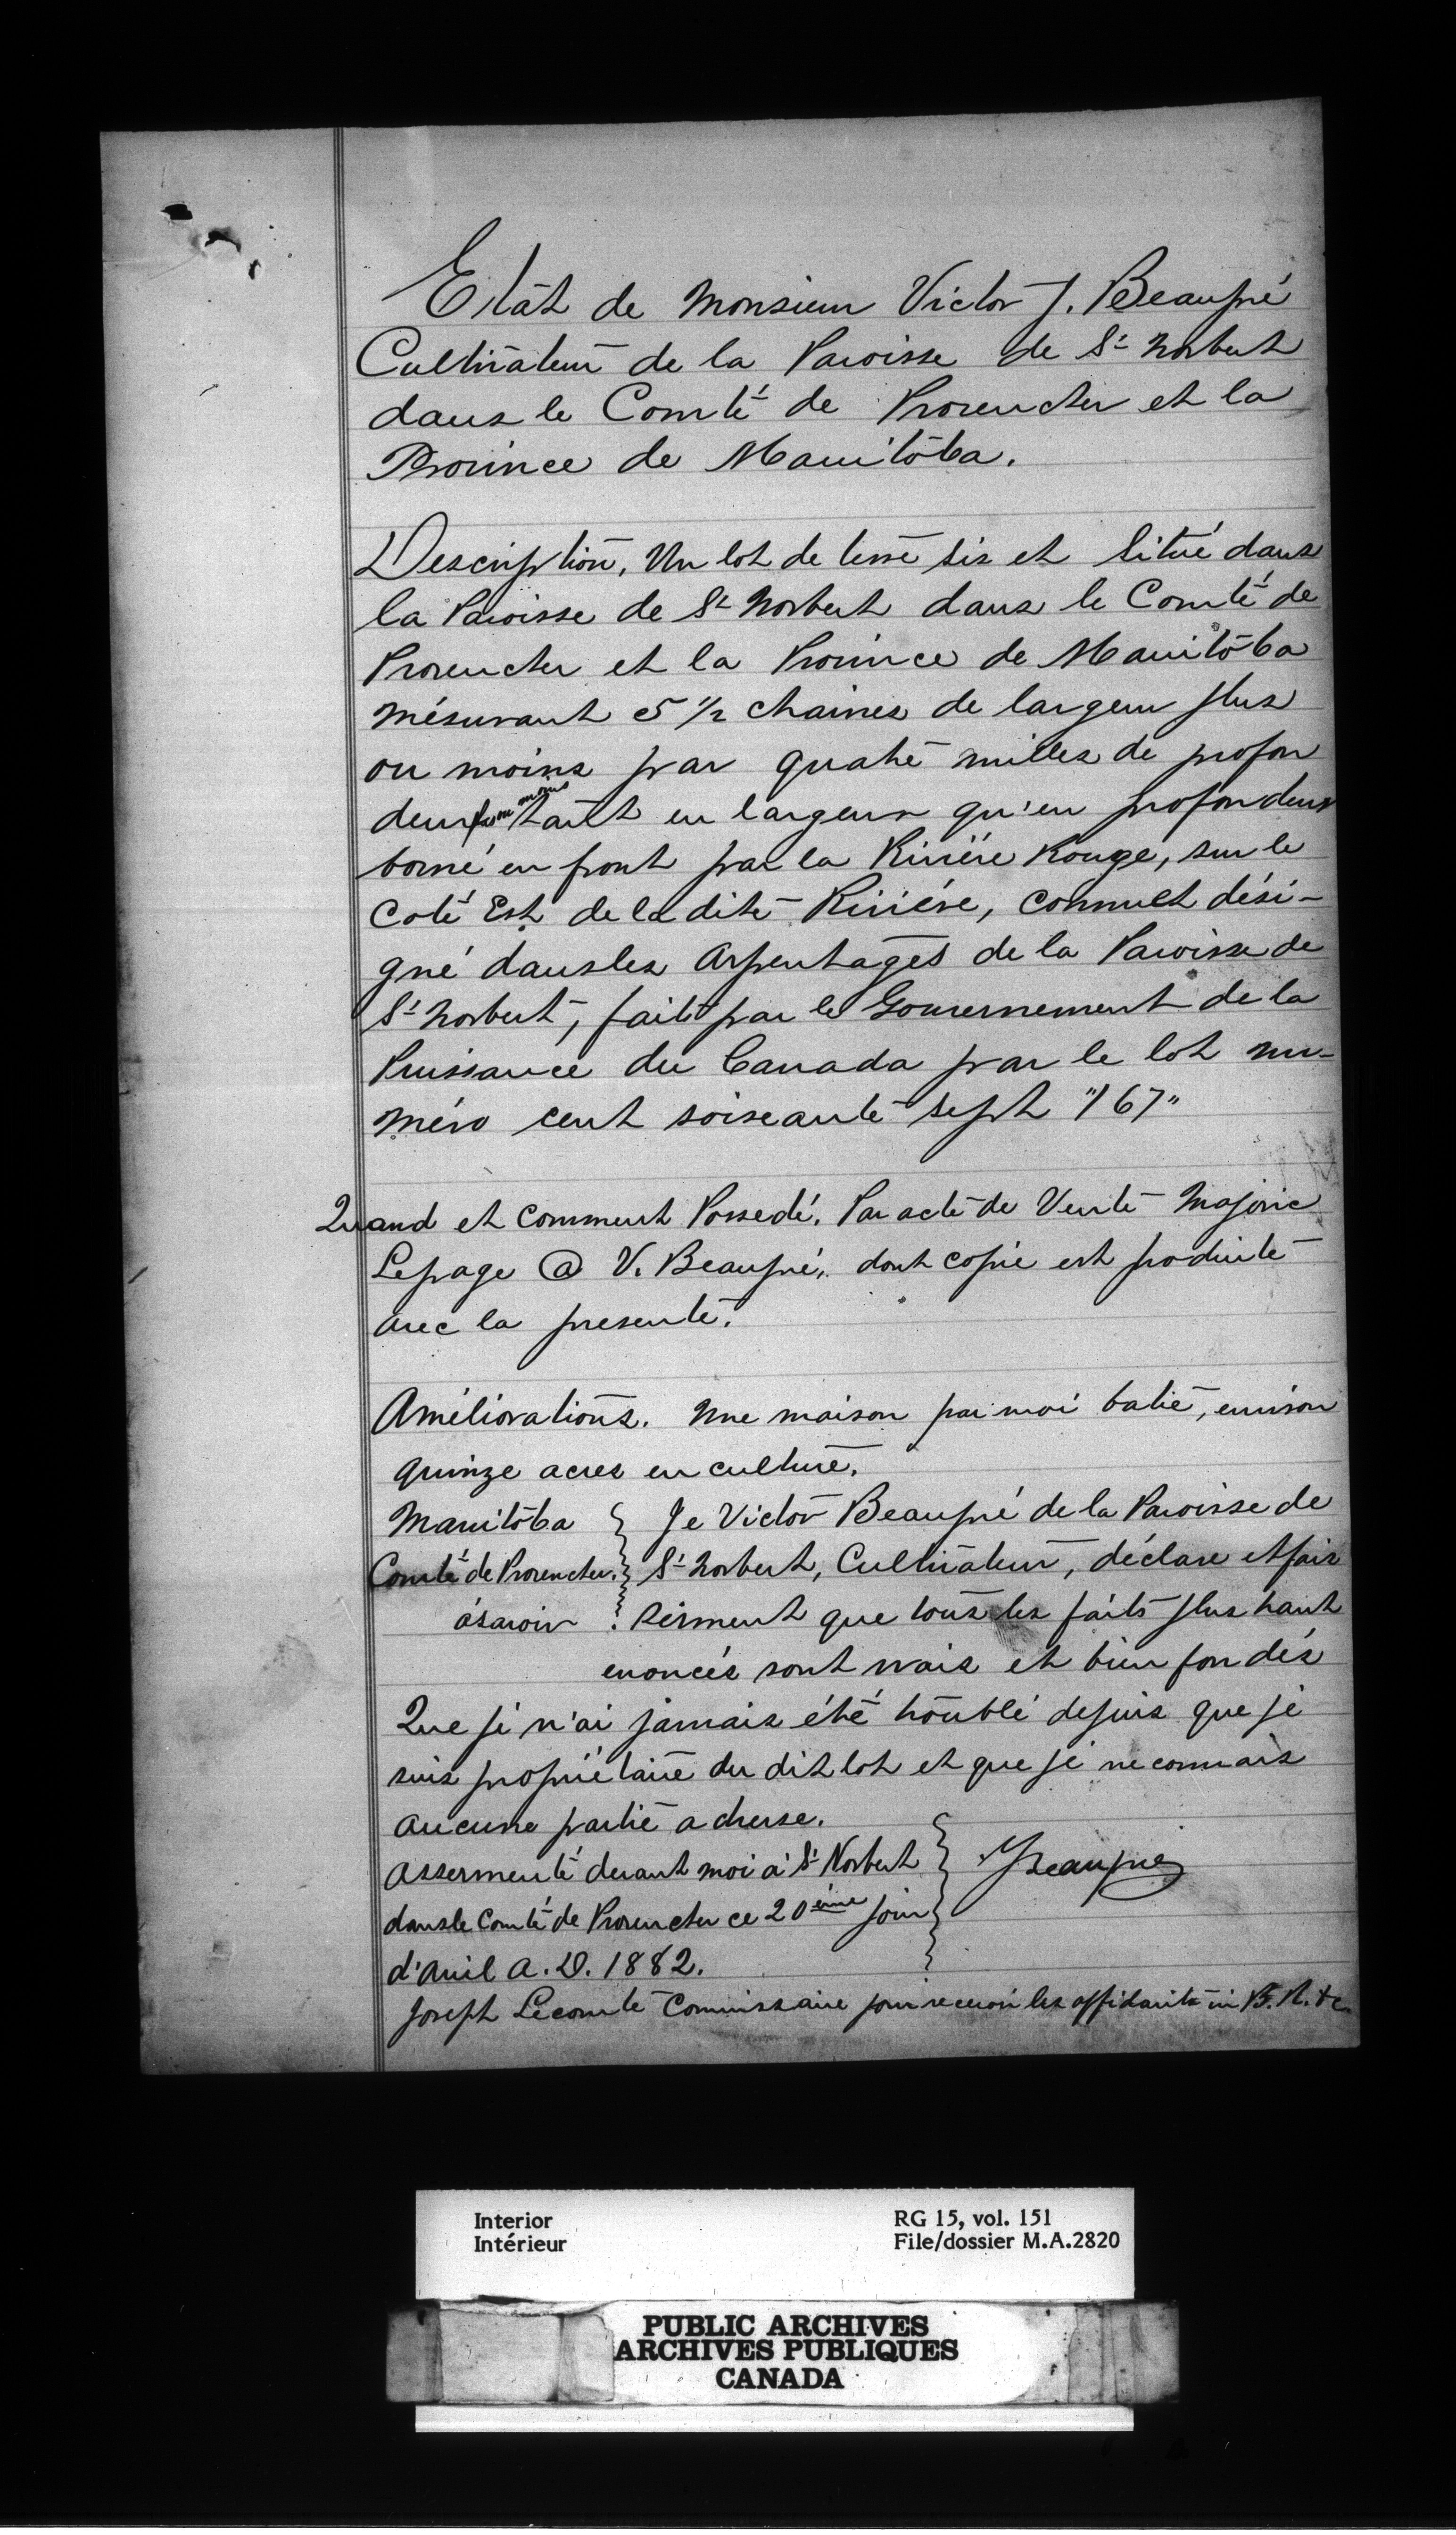 Etât de Monsieur Victor J. Beaupré
Cultivateur de la Paroisse de St Norbert
dans le Comté de Provencher et la
Province de Manitoba.
Description. Un lot de terre sis et situé dans
la Paroisse de St Norbert dans le Comté de
Provencher et la Province de Manitoba
mésurant 5 1/2 chaines de largeur plus
ou moins par quatre milles de profon
deur plus ou moins tant en largeur qu'en profondeur
borné en front par la Riviére Rouge, sur le
coté Est de la dite Riviére, connu et dési-
gné dans les Arpentages de la Paroisse de
St Norbert, faits par le Gouvernement de la
Puissance du Canada par le lot nu-
méro cent soiseante sept "167"
Quand et comment Possedé. Par acte de Vente Majoric
Lepage @ V. Beaupré, dont copie est produite
avec la presente.
Améliorations. Une maison par moi batie, environ
quinze acres en culture.
Manitoba } Je Victor Beaupré de la Paroisse de
Comté de Provencher. } St Norbert, Cultivateur, déclare et fais
àsavoir : serment que tous les faits plus haut
enoncés sont vrais et bien fondés
Que je n'ai jamais été troublé depuis que je
suis propriétaire du dit lot et que je ne connais
aucune partie adverse.
Assermenté devant moi à St Norbert } V Beaupré
dans le Comté de Provencher ce 20ème jour
d'Avril A.D. 1882.
Joseph Lecomte Commissaire pour recevoir les affidavits in B.R. &c
Interior
Intérieur
RG 15, vol. 151
File/dossier M.A.2820
PUBLIC ARCHIVES
ARCHIVES PUBLIQUES
CANADA